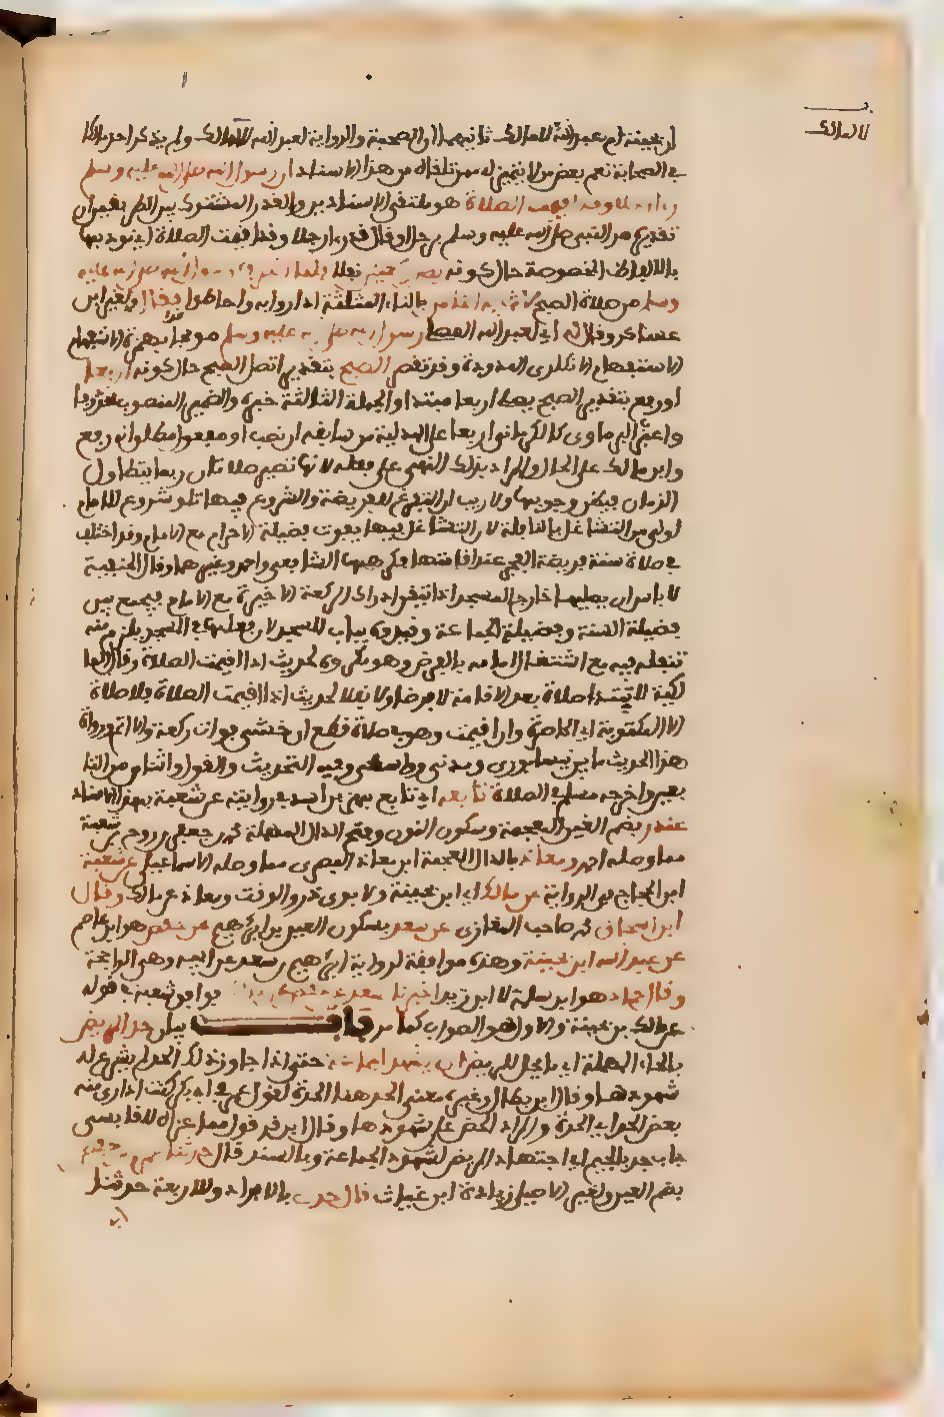 لا لمالك
ابن بحينة ام عبد الله لا مالك ثانيهما ان الصحبة والرواية لعبد الله لا لمالك ولم يذكر احد مالكا
في الصحابة نعم بعض من لا تمييز له ممن تلقاه من هذا الاسناد ان رسول الله صلى الله عليه وسلم
راى رجلا وقد اقيمت الصلاة هو ملتقى الاسنادين والقدر المشترك بين الطريقين اذ
تقديره مر النبي صلى الله عليه وسلم برجل او قال قد راى رجلا وقد اقيمت الصلاة اي نودي لها
بالالفاظ المخصوصة حال كونه يصلي ركعتين نفلا فلما انصرف رسول الله صلى الله عليه
وسلم من صلاة الصبح لاث به الناس بالثاء المثلثة اي داروا به واحاطوا وقال ولغير ابن
عساكر وقال له اي لعبد الله المصلي رسول الله صلى الله عليه وسلم موبخا بهمزة الاستفهام
الاستفهام الانكاري الممدودة وقد تقصر الصبح بتقدير اتصلي الصبح حال كونه اربعا
او رفع بتقدير الصبح يصلى اربعا مبتدا والجملة الثالثة خبره والضمير المنصوب محذوف
واعرب البرماوي كالكرماني اربعا على البدلية من سابقه ان نصب او مفعول مطلق وان رفع
وابن مالك على الحال والمراد بذلك النهي عن فعله لانها تصير صلاتان ربما يتطاول
الزمان فيظن وجوبها ولا ريب ان التفرغ للفريضة والشروع فيها تلو شروع الامام
اولى من التشاغل بالنافلة لان التشاغل بها يفوت فضيلة الاحرام مع الامام وقد اختلف
في صلاة سنة فريضة الفجر عند اقامتها فكرهها الشافعي واحمد وغيرهما وقال الحنفية
لا باس ان يصليها خارج المسجد اذا تيقن ادراك الركعة الاخيرة مع الامام فيجمع بين
فضيلة السنة وفضيلة الجماعة وقيدوه بباب المسجد لان فعلها في المسجد يلزم منه
تنفله فيه مع اشتغال امامه بالفرض وهو مكروه لحديث اذا اقيمت الصلاة وقال الما
لكية لا تبتدا صلاة بعد الاقامة لا فرضا ولا نفلا لحديث اذا اقيمت الصلاة فلا صلاة
الا المكتوبة اي الحاضرة وان اقيمت وهو في صلاة قطع ان خشي فوات ركعة والا اتم ورواة
هذا الحديث ما بين نيسابوري ومدني وواسطي وفيه التحديث والقول واثنان من التا
بعين واخرجه مسلم في الصلاة تابعه اي تابع بهز بن اسد في روايته عن شعبة بهذا الاسناد
غندر بضم الغين المعجمة وسكون النون وفتح الدال المهملة محمد بن جعفر بن زوج شعبة
مما وصله احمد ومعاذ بالذال المعجمة ابن معاذ البصري مما وصله الاسماعيلي عن شعبة
ابن الحجاج في الرواية عن مالك اي ابن بحينة ولابوي ذر والوقت ومعاذ عن مالك وقال
ابن اسحاق محمد صاحب المغازي عن سعد بسكون العين بن ابراهيم عن حفص هو ابن عاصم
عن عبد الله ابن بحينة وهذه موافقة لرواية ابراهيم بن سعد عن ابيه وهي الراجحة
وقال حماد هو ابن سلمة لا ابن زيد اخبرنا سعد عن حفص عن مالك فوافق شعبة في قوله
عن مالك بن بحينة والاول هو الصواب كما مر باب بيان حد المريض
بالحاء المهملة اي ما يحل للمريض ان يشهد الجماعة حتى اذا جاوز ذلك الحد لم يشرع له
شهودها وقال ابن بطال وغيره معنى الحد هنا الحدة كقول عمر في ابي بكر كنت اداري منه
بعض الحد اي الحدة والمراد الحض على شهودها وقال ابن قرقول مما عزاه للقابسي
باب جد بالجيم اي اجتهاد المريض لشهود الجماعة وبالسند قال حدثنا عمر بن حفص
بضم العين ولغير الاصيلي زيادة ابن غياث قال حدثني بالافراد وللاربعة حدثنا
ابي